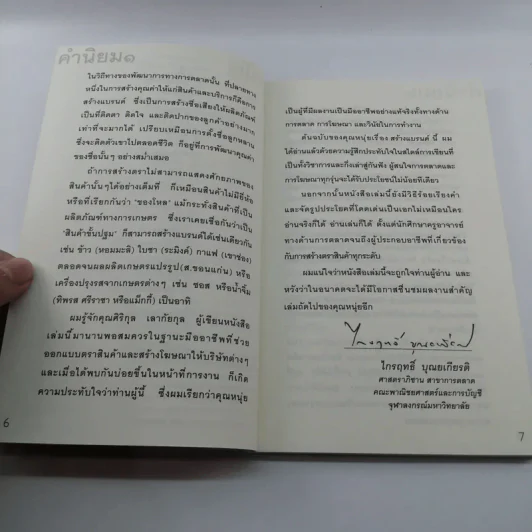 คำนิยม๑
ในวิถีทางของพัฒนาการทางการตลาดนั้น ที่ปลายทาง
หนึ่งในการสร้างคุณค่าให้แก่สินค้าและบริการก็คือการ
สร้างแบรนด์ ซึ่งเป็นการสร้างชื่อเสียงให้ผลิตภัณฑ์
เป็นที่ติดตา ติดใจ และติดปากของลูกค้าอย่างมาก
เท่าที่จะมากได้ เปรียบเหมือนการตั้งชื่อลูกหลาน
ซึ่งจะติดตัวเขาไปตลอดชีวิต ก็อยู่ที่การพัฒนาคุณค่า
ของชื่อนั้นๆ อย่างสม่ำเสมอ
ถ้าการสร้างตราไม่สามารถแสดงศักยภาพของ
สินค้านั้นๆได้อย่างเต็มที่ ก็เหมือนสินค้าไม่มียี่ห้อ
หรือที่เรียกกันว่า 'ของโหล' แม้กระทั่งสินค้าที่เป็น
ผลิตภัณฑ์ทางการเกษตร ซึ่งเราเคยเชื่อกันว่าเป็น
'สินค้าขั้นปฐม' ก็สามารถสร้างแบรนด์ได้เช่นเดียวกัน
เช่น ข้าว (หอมมะลิ) ใบชา (ระมิงค์) กาแฟ (เขาช่อง)
ตลอดจนผลผลิตเกษตรแปรรูป(ส.ขอนแก่น) หรือ
เครื่องปรุงรสจากเกษตรต่างๆ เช่น ซอส หรือน้ำจิ้ม
(ทิพรส ศรีราชา หรือแม็กกี้) เป็นอาทิ
ผมรู้จักคุณศิริกุล เลากัยกุล ผู้เขียนหนังสือ
เล่มนี้มานานพอสมควรในฐานะมืออาชีพที่ช่วย
ออกแบบตราสินค้าและสร้างโฆษณาให้บริษัทต่างๆ
และเมื่อได้พบกันบ่อยขึ้นในหน้าที่การงาน ก็เกิด
ความประทับใจว่าท่านผู้นี้ ซึ่งผมเรียกว่าคุณหนุ่ย
6
เป็นผู้ที่มีผลงานเป็นมืออาชีพอย่างแท้จริงทั้งทางด้าน
การตลาด การโฆษณา และวินัยในการทำงาน
ต้นฉบับของคุณหนุ่ยเรื่อง สร้างแบรนด์ นี้ ผม
ได้อ่านแล้วด้วยความรู้สึกประทับใจในสไตล์การเขียนที่
เป็นทั้งวิชาการและกึ่งเล่าสู่กันฟัง ผู้สนใจการตลาดและ
การโฆษณาทุกรุ่นจะได้รับประโยชน์ไม่น้อยทีเดียว
นอกจากนั้นหนังสือเล่มนี้ยังมีวิธีร้อยเรียงคำ
และจัดรูปประโยคที่โดดเด่นเป็นเอกไม่เหมือนใคร
อ่านจริงก็ได้ อ่านเล่นก็ได้ ตั้งแต่นักศึกษาครูอาจารย์
ทางด้านการตลาดจนถึงผู้ประกอบอาชีพที่เกี่ยวข้อง
กับการสร้างตราสินค้าทุกระดับ
ผมแน่ใจว่าหนังสือเล่มนี้จะถูกใจท่านผู้อ่าน และ
หวังว่าในอนาคตจะได้มีโอกาสชื่นชมผลงานสำคัญ
เล่มถัดไปของคุณหนุ่ยอีก
ไกรฤทธิ์ บุณยเกียรติ
ไกรฤทธิ์ บุณยเกียรติ
ศาสตราภิชาน สาขาการตลาด
คณะพาณิชยศาสตร์และการบัญชี
จุฬาลงกรณ์มหาวิทยาลัย
7